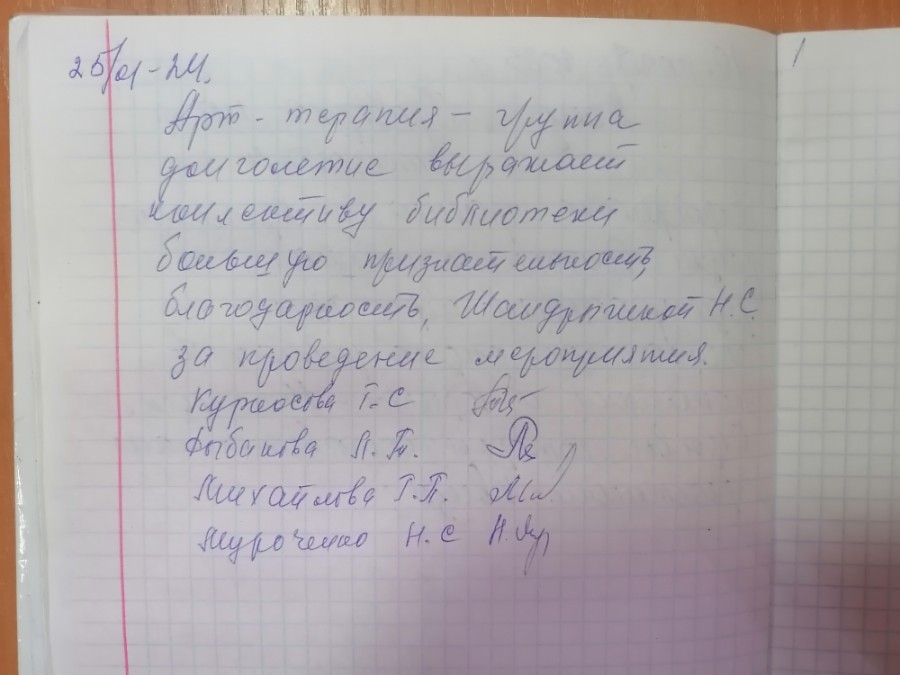 25/01-24.
Арт-терапия – группа
долголетие выражает
коллективу библиотеки
большую признательность,
благодарность, Шандрыгиной Н.С.
за проведение мероприятия.
Курносова Т.С
Рыбакова Л.Т.
Михайлова Т.П.
Муроченко Н.С